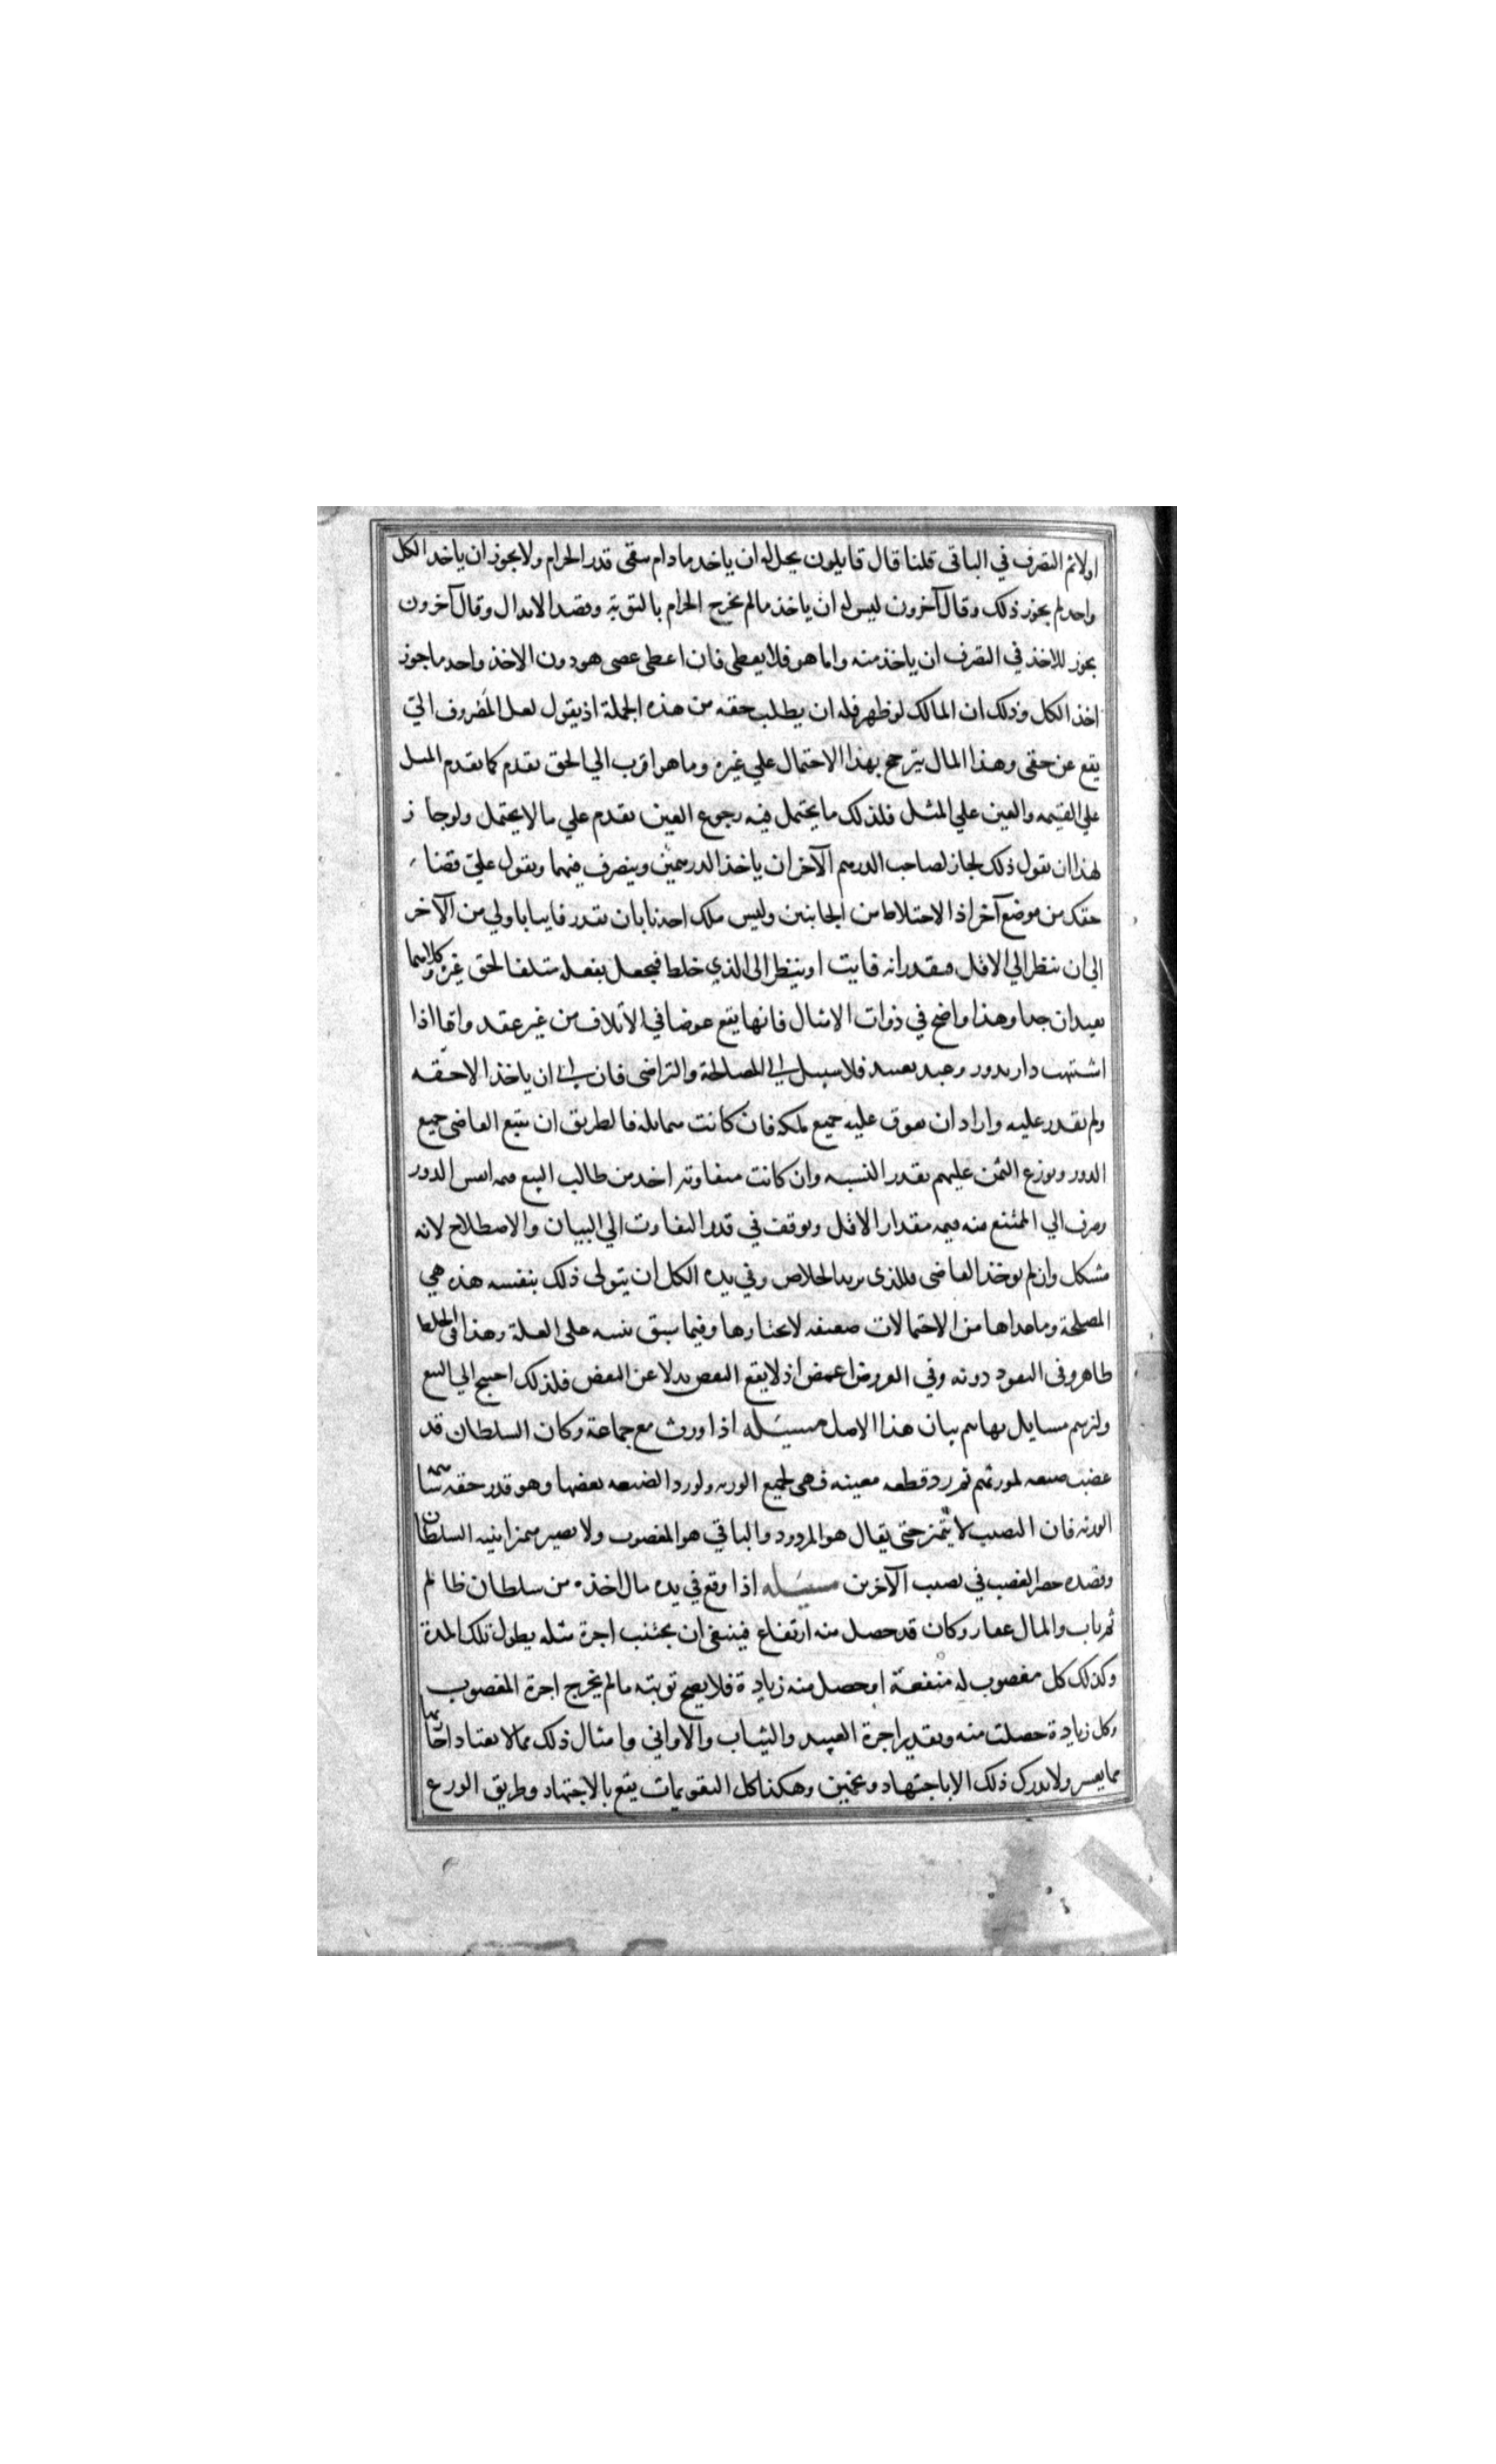 اولا ثم التصرف في الباقي قلنا قال قايلون يحل له ان ياخد مادام يبقى قدر الحرام ولا يجوز ان ياخد الكل
واحد لم يجوز ذلك وقال آخرون ليس له ان ياخذ مالم يخرج الحرام بالتوبة وقصد الابدال وقال آخرون
يجوز للاخذ في التصرف ان ياخذ منه واما هو فلا يعطى فان اعطى عصى هو دون الاخذ واحد ما جوز
اخذ الكل وذلك ان المالك لو ظهر فله ان يطلب حقه من هذه الجملة اذ يقول لعل المصروف التي
يقع عن حقى وهذا المال يترجح بهذا الاحتمال علي غيره وما هو اقرب الي الحق يقدم كما يقدم المثل
علي القيمه والعين علي المثل فلذلك ما يحتمل فيه رجوع العين يقدم علي ما لا يحتمل ولو جاز
لهذا ان يقول ذلك لجاز لصاحب الدرهم الآخر ان ياخذ الدرهمين ويتصرف فيهما ويقول عليّ قضاء
حقك من موضع آخر اذ الاختلاط من الجانبين وليس ملك احدنا بان يقدر فايتا باولي من الآخر
الي ان ينظر الي الاقل فيقدر انه فايت او ينظر الى الذي خلط فيجعل بفعله متلفا لحق غيره وكلاهما
بعيدان جدا وهذا واضح في ذوات الامثال فانها يقع عوضا في الاتلاف من غير عقد واما اذا
اشتبهت دار بدور وعبد بعبيد فلا سبيل الي المصالحة والتراضى فان ابى ان ياخذ الا حقه
ولم يقدر عليه واراد ان يعوق عليه جميع ملكه فان كانت متماثلة فالطريق ان يبيع القاضى جميع
الدور ويوزع الثمن عليهم بقدر النسبه وان كانت متفاوتة اخد من طالب البيع قيمه انفس الدور
وصرف الي الممتنع منه قيمه مقدار الاقل ويوقف في قدر التفاوت الي البيان والاصطلاح لانه
مشكل وان لم يوخد القاضى فللذى يريد الخلاص وفي يده الكل ان يتولى ذلك بنفسه هذه هي
المصلحة وما عداها من الاحتمالات ضعيفه لا نختارها وفيما سبق تنبيه على العلة وهذا في الخلط
ظاهر وفى النقود دونه وفي العروض اغمض اذ لا يقع البعض بدلا عن البعض فلذلك احتيج الي البيع
ولنرسم مسايل بها يتم بيان هذا الاصل مسيله اذا ورث مع جماعة وكان السلطان قد
غصب ضيعه لمورثهم فرد قطعه معينه فهى لجميع الورثه ولو رد الضيعه بعضها وهو قدر حقه
الورثه فان النصيب لا يتميز حتى يقال هو المردود والباقي هو المغصوب ولا يصير مميزا بنيه السلطان
وقصده حصر الغصب في نصيب الآخرين مسيله اذا وقع في يده مال اخذه من سلطان ظالم
ثم تاب والمال عقار وكان قد حصل منه ارتفاع فينبغى ان يجتنب اجرة مثله بطول تلك المدة
وكذلك كل مغصوب له منفعة او حصل منه زيادة فلا يصح توبته مالم يخرج اجرة المغصوب
وكل زيادة حصلت منه وتقدير اجرة العبيد والثياب والاوانى وامثال ذلك مما لا يعتاد
مما يعسر ولا يدرك ذلك الا باجتهاد وتخمين وهكذا كل التقويمات يقع بالاجتهاد وطريق الورع